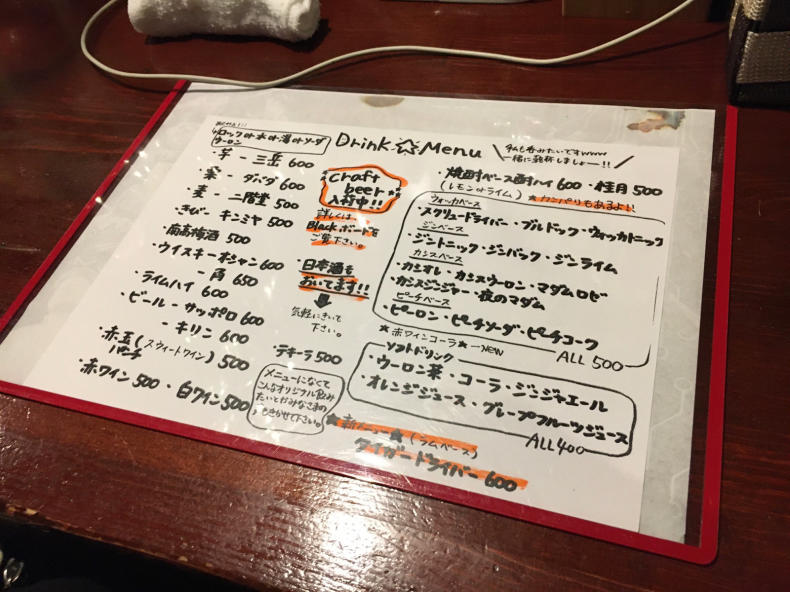 ロックor水or湯orソーダ
ウーロン
芋 - 三岳 600
栗 - ダバダ 600
麦 - 二階堂 500
きび - キンミヤ 500
・南高梅酒 500
・ウイスキー・オーシャン 600
- 角 650
・ライムハイ 600
・ビール - サッポロ 600
- キリン 600
・赤玉(スウィートワイン) 500
パンチ
・赤ワイン 500 ・白ワイン 500
Drink ☆ Menu
私も呑みたいですwww
一緒に乾杯しましょー!!
Craft
beer
入荷中!!
詳しくは
Blackボードを
ご覧下さい。
・日本酒も
おいてます!!
気軽にきいて
下さい。
・テキーラ 500
メニューになくて
こんなオリジナル飲み
たいとかみなさまの
声きかせて下さい。
・焼酎ベース酎ハイ 600 ・桂月 500
(レモンorライム) ★カンパリもあるよ!!
ウォッカベース
・スクリュードライバー・ブルドック・ウォッカトニック
ジンベース
・ジントニック・ジンバック・ジンライム
カシスベース
・カシオレ・カシスウーロン・マダムロビ
・カシスジンジャー・夜のマダム
ピーチベース
・ピーロン・ピーチソーダ・ピーチコーク
★赤ワインコーラ★ - New
ALL 500
ソフトドリンク
・ウーロン茶・コーラ・ジンジャエール
・オレンジジュース・グレープフルーツジュース
ALL 400
★新メニュー★(ラムベース)
タイガードライバー 600